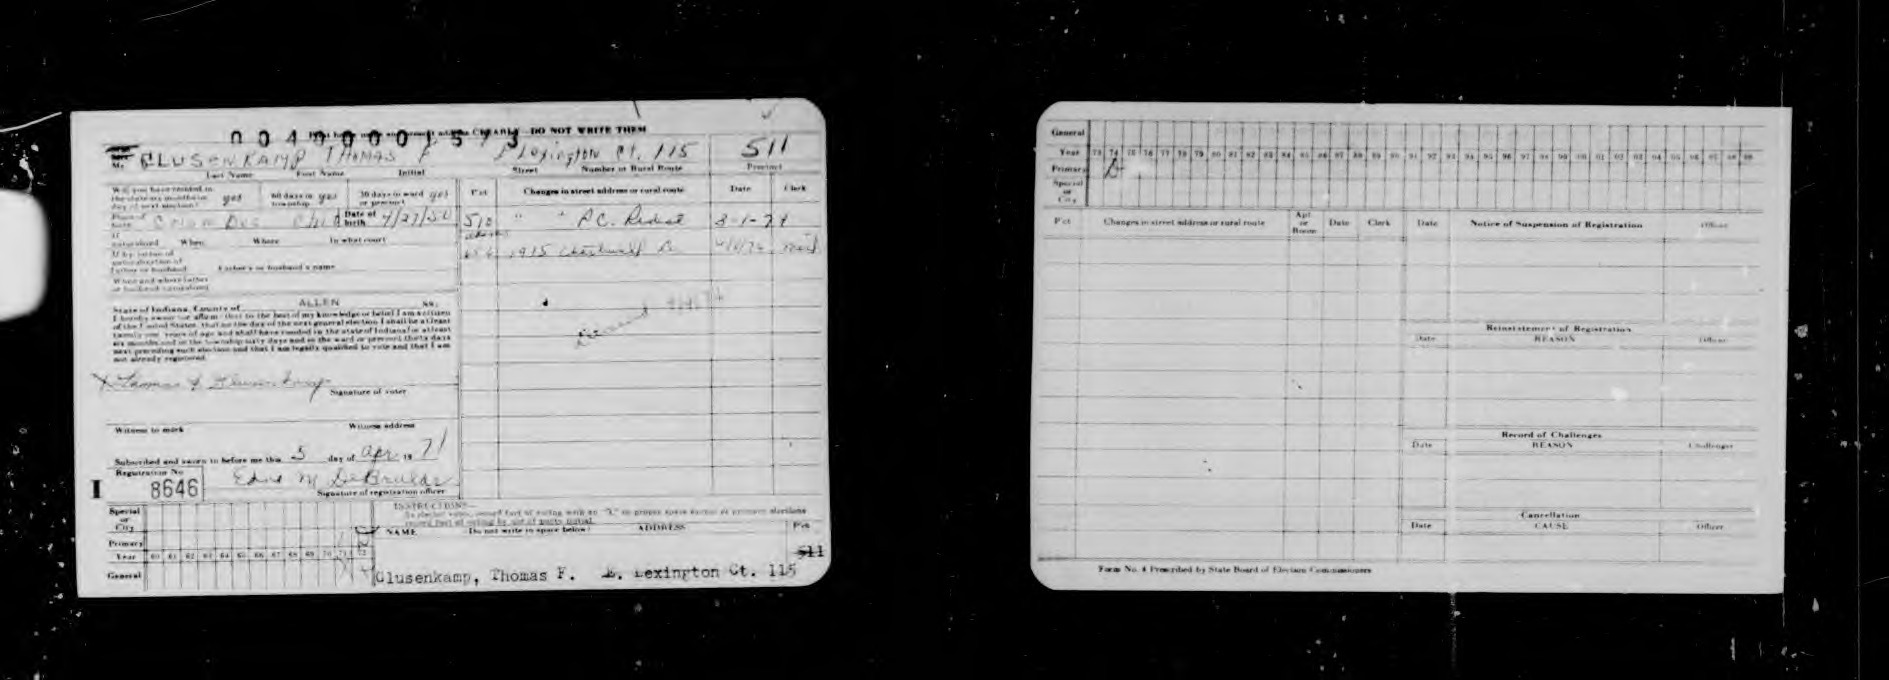 0040001573
DO NOT WRITE THEM
CLUSENKAMP THOMAS F Lexington Ct. 115 511
Last Name First Name Initial Street Number or Rural Route Precinct
Will you have resided in the state six months on day of next election? yes 60 days in township yes 30 days in ward or precinct yes
Pct Changes in street address or rural route Date Clerk
Place of birth Date of birth
510 " " P.C. Redist 3-1-74
If naturalized When Where In what court
1915
If by virtue of naturalization of father or husband Father's or husband's name
When and where father or husband naturalized
State of Indiana, County of ALLEN SS.
I hereby swear (or affirm) that to the best of my knowledge or belief I am a citizen
of the United States, that on the day of the next general election I shall be at least
twenty-one years of age and shall have resided in the state of Indiana for at least
six months and in the township sixty days and in the ward or precinct thirty days
next preceding such election and that I am legally qualified to vote and that I am
not already registered.
X Thomas F Clusenkamp
Signature of voter
Witness to mark Witness address
Subscribed and sworn to before me this 5 day of Apr 19 71
Registration No.
I 8646
Signature of registration officer
INSTRUCTIONS
Special or City
Primary
NAME Do not write in space below! ADDRESS Pct
Year 60 61 62 63 64 65 66 67 68 69 70 71 72
511
General
Clusenkamp, Thomas F. Lexington Ct. 115
General
Year 73 74 75 76 77 78 79 80 81 82 83 84 85 86 87 88 89 90 91 92 93 94 95 96 97 98 99 00 01 02 03 04 05 06 07 08 09
Primary D
Special or City
Pct Changes in street address or rural route Apt. or Room Date Clerk Date Notice of Suspension of Registration Officer
Reinstatement of Registration
Date REASON Officer
Record of Challenges
Date REASON Challenger
Cancellation
Date CAUSE Officer
Form No. 4 Prescribed by State Board of Election Commissioners